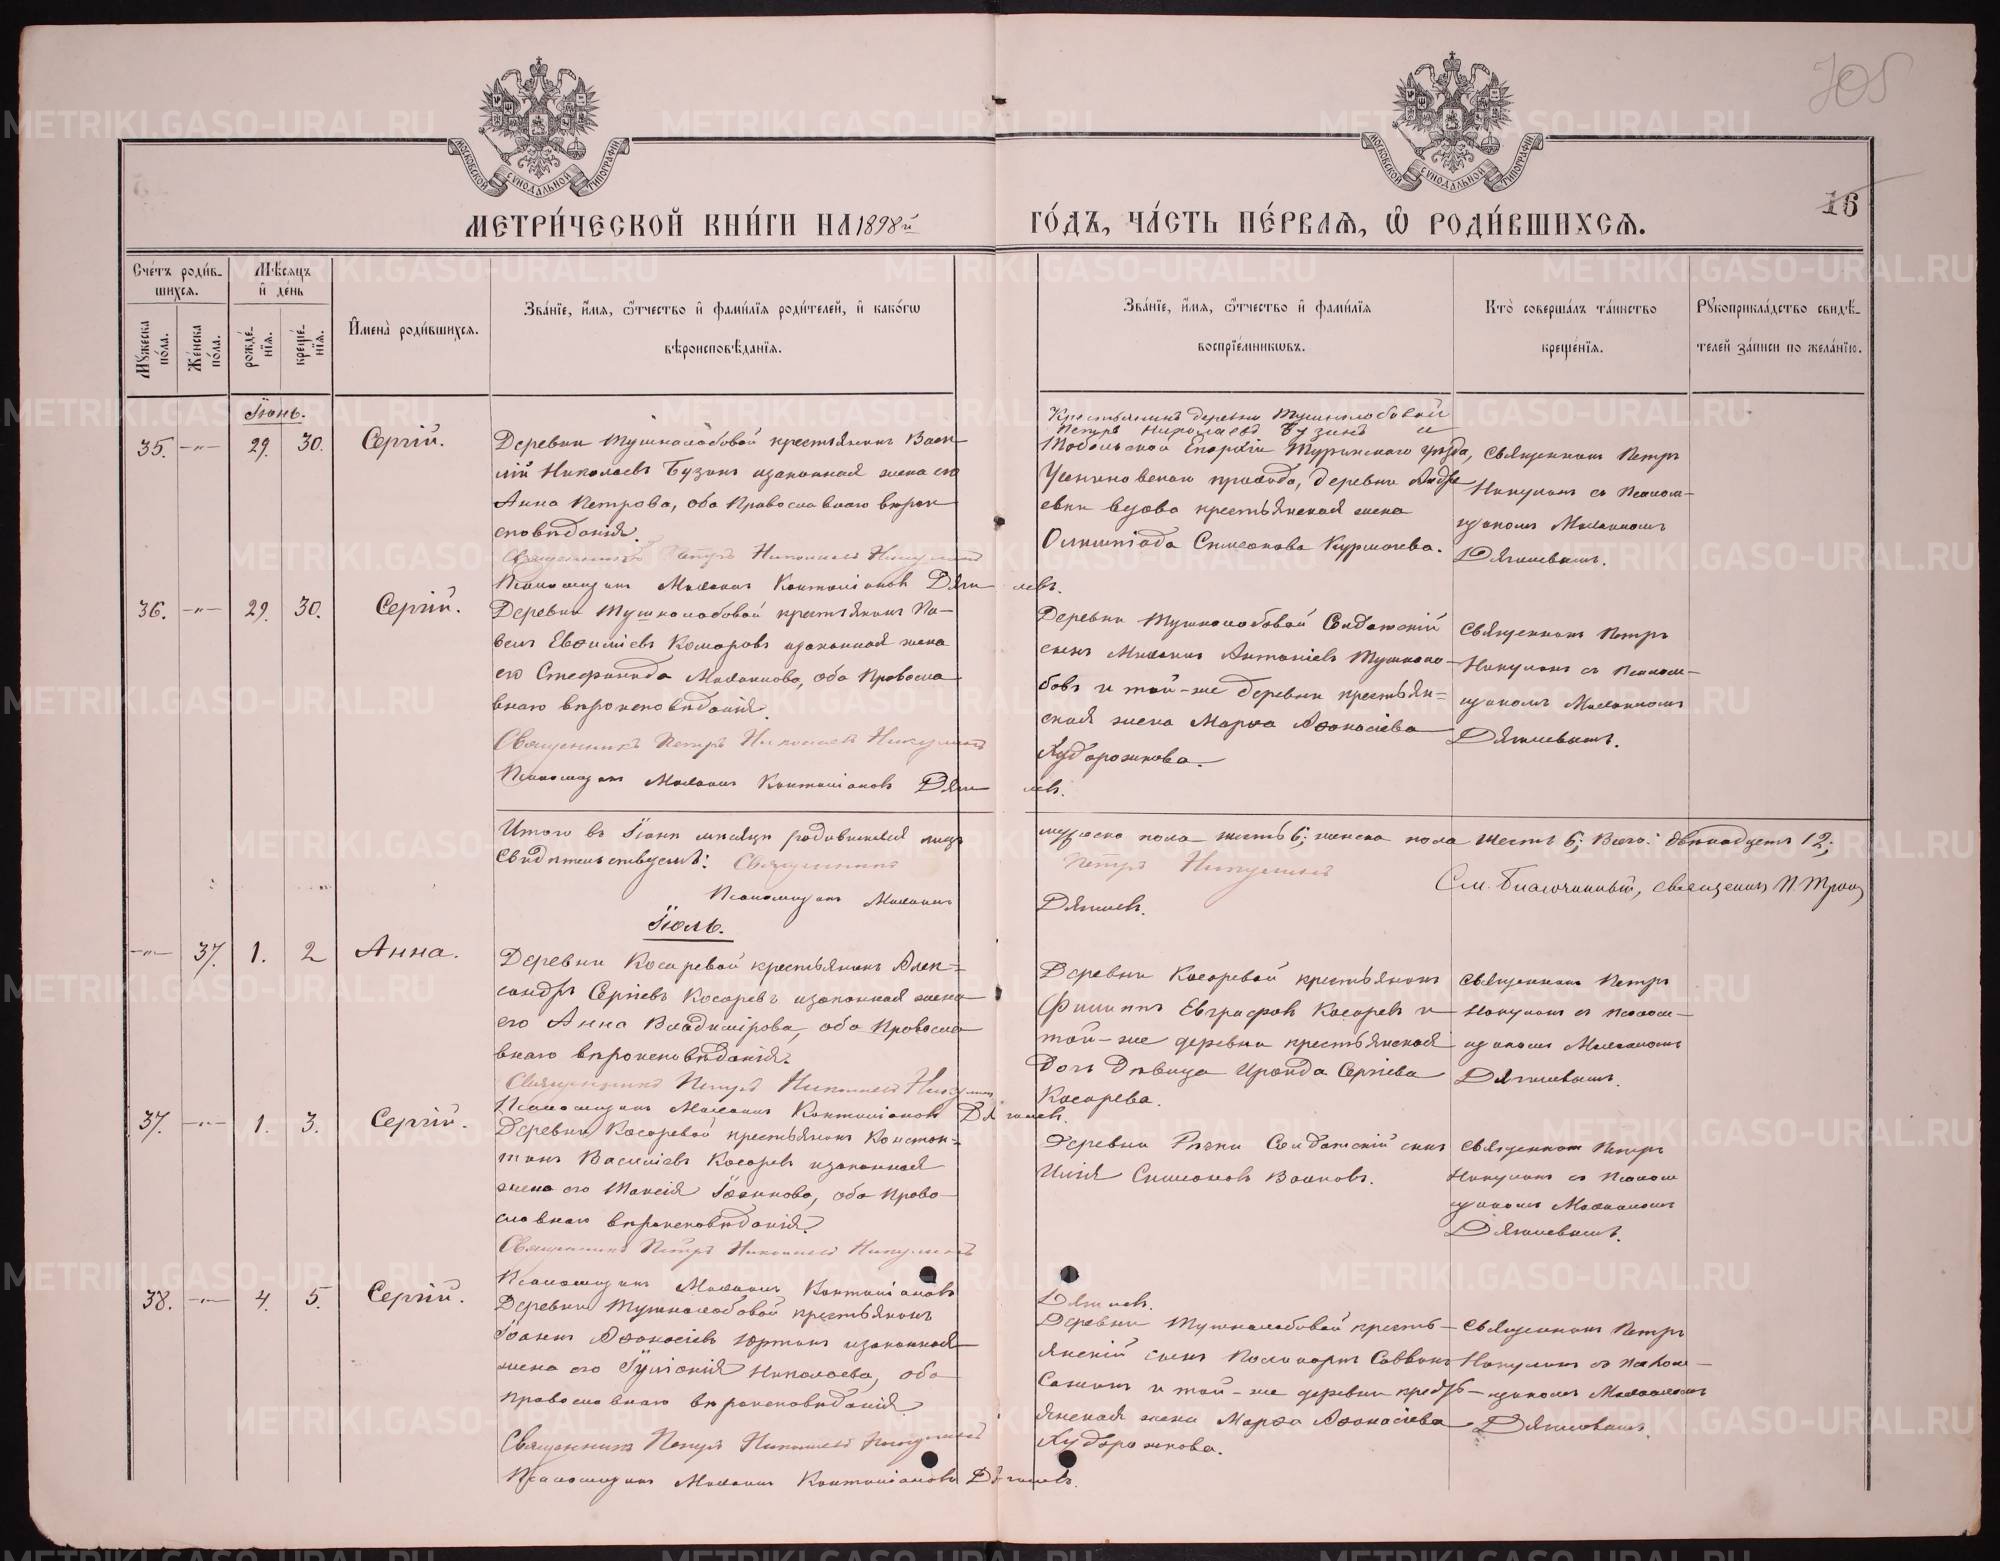 705
16
МОСКОВСКОЙ СѴНОДАЛЬНОЙ ТИПОГРАФІИ
МОСКОВСКОЙ СѴНОДАЛЬНОЙ ТИПОГРАФІИ
МЕТРИ́ЧЕСКОЙ КНИ́ГИ НА 1898й
ГО́ДЪ, ЧА́СТЬ ПЕ́РВАѦ, Ѽ РОДИ́ВШИХСѦ.
Сче́тъ роди́в-
шихсѧ.
Мꙋ́жеска по́ла.
Же́нска по́ла.
Мѣ́сѧцъ
и҆ де́нь
рожде́-
нїѧ.
креще́-
нїѧ.
И҆мена̀ роди́вшихсѧ.
Зва́нїе, и҆́мѧ, ѻ҆́тчество и҆ фами́лїѧ роди́телей, и҆ како́гѡ
вѣроисповѣ́данїѧ.
Зва́нїе, и҆́мѧ, ѻ҆́тчество и҆ фами́лїѧ
воспрїе́мникѡвъ.
Кто̀ соверша́лъ та́инство
креще́нїѧ.
Рꙋкоприкла́дство свидѣ́-
телей за́писи по жела́нїю.
Іюнь.
35. -"- 29. 30. Сергій.
Деревни Тушнолобовой крестьянинъ Васи
лій Николаевъ Бузинъ изаконная жена его
Анна Петрова, оба Православнаго вѣрои
сповѣданія.
Священникъ Петръ Николаевъ Никулинъ
Псаломщикъ
Дяги левъ.
Крестьянинъ деревни Тушнолобовой
Петръ Николаевъ Бузинъ и
Тобольской Епархіи Туринскаго уѣзда,
прихода, деревни Андре
евки вдова крестьянская жена
Олимпіада Симеонова Курмачева.
Священникъ Петръ
Никулинъ съ Псалом-
щикомъ
Дягилевымъ.
36. -"- 29. 30. Сергій.
Деревни Тушнолобовой крестьянинъ Па-
велъ Евѳиміевъ Комаровъ изаконная жена
его Стефанида оба Правосла
внаго вѣроисповѣданія.
Священникъ Петръ Николаевъ Никулинъ
Псаломщикъ
Дяги левъ.
Деревни Тушнолобовой Солдатскій
сынъ Антоніевъ Тушноло-
бовъ и той-же деревни крестьян=
ская жена Марѳа Аѳонасіева
Худорожкова.
Священникъ Петръ
Никулинъ съ Псалом-
щикомъ
Дягилевымъ.
Итого въ Іюнѣ мѣсяцѣ родившихся лицъ
мужеска пола шесть 6; женска пола шесть 6; Всего: двѣнадцать 12;
Свидѣтельствуемъ: Священникъ
Петръ Никулинъ
Псаломщикъ
Дягилевъ.
См. Благочинный, священникъ П.
Іюль.
-"- 37. 1. 2 Анна.
Деревни Косаревой крестьянинъ Алек=
сандръ Сергіевъ Косаревъ изаконная жена
его Анна Владимірова, оба Правосла
внаго вѣроисповѣданія.
Священникъ Петръ Николаевъ Никулинъ
Псаломщикъ
Дягилевъ.
Деревни Косаревой крестьянинъ
Филиппъ Евграфовъ Косаревъ и
той-же деревни крестьянская
дочь дѣвица Ираида Сергіева
Косарева.
Священникъ Петръ
Никулинъ съ Псалом-
щикомъ
Дягилевымъ.
37. -"- 1. 3. Сергій.
Деревни Косаревой крестьянинъ Констан=
тинъ Василіевъ Косаревъ изаконная
жена его Таисія Іоаннова, оба Право-
славнаго вѣроисповѣданія.
Священникъ Петръ Николаевъ Никулинъ
Псаломщикъ
Дягилевъ.
Деревни Солдатскій сынъ
Илія Симеоновъ Волковъ.
Священникъ Петръ
Никулинъ съ Псалом
щикомъ
Дягилевымъ.
38. -"- 4. 5. Сергій.
Деревни Тушнолобовой крестьянинъ
Іоаннъ Аѳонасіевъ изаконная
жена его Іуліанія Николаева, оба
Православнаго вѣроисповѣданія.
Священникъ Петръ Николаевъ Никулинъ
Псаломщикъ
Дягилевъ.
Деревни Тушнолобовой кресть-
янскій сынъ Поликарпъ Саввинъ
и той-же деревни кресть-
янская жена Марѳа Аѳонасіева
Худорожкова.
Священникъ Петръ
Никулинъ съ Псалом-
щикомъ
Дягилевымъ.
METRIKI.GASO-URAL.RU